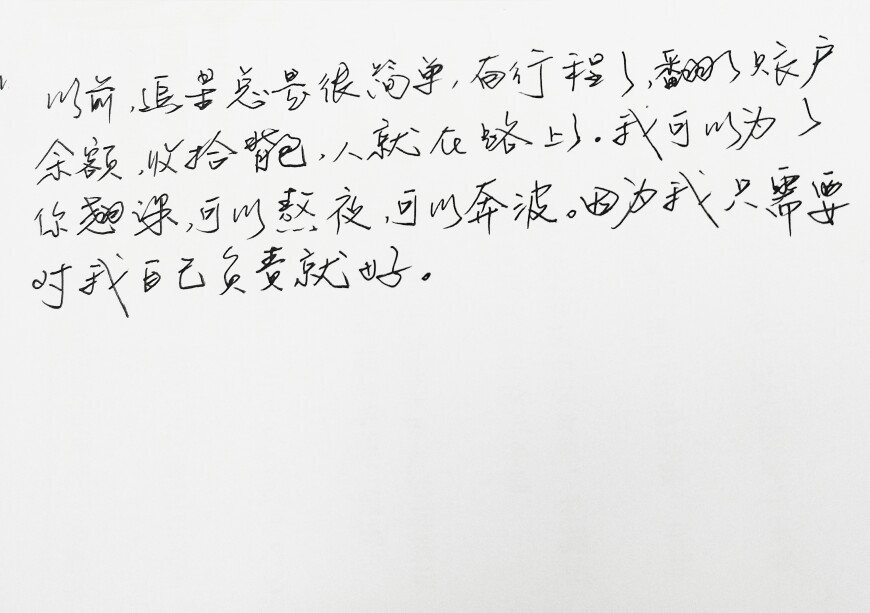 以前,追星总是很简单,有行程了,翻了账户
余额,收拾背包,人就在路上了.我可以为了
你翘课,可以熬夜,可以奔波。因为我只需要
对我自己负责就好。